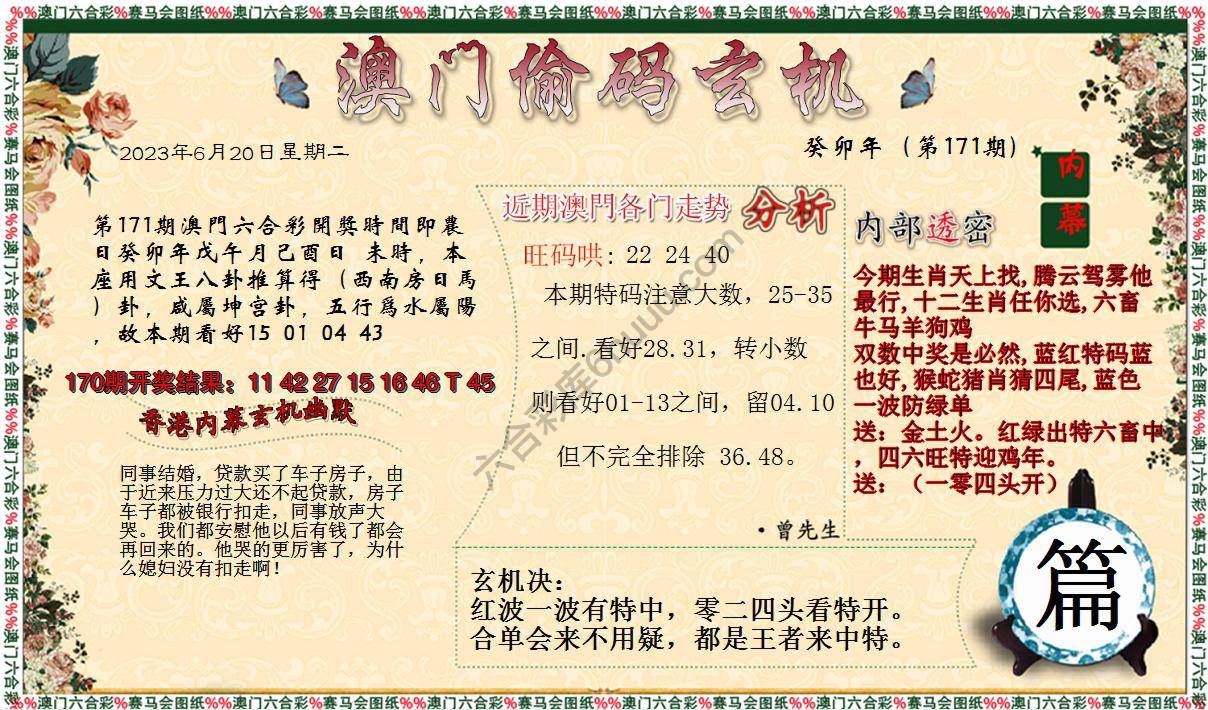 %%澳门六合彩%赛马会图纸%%澳门六合彩%赛马会图纸%%澳门六合彩%赛马会图纸%%澳门六合彩%赛马会图纸%%澳门六合彩%赛马会图纸%%澳门六合彩%赛马会图纸%%
澳门偷码玄机
2023年6月20日星期二
癸卯年（第171期）
内幕
第171期澳門六合彩開獎時間即農
日癸卯年戊午月己酉日 未時，本
座用文王八卦推算得（西南房日馬
）卦，咸屬坤宫卦，五行爲水屬陽
，故本期看好15 01 04 43
170期开奖结果：11 42 27 15 16 46 T 45
香港内幕玄机幽默
同事结婚，贷款买了车子房子，由
于近来压力过大还不起贷款，房子
车子都被银行扣走，同事放声大
哭。我们都安慰他以后有钱了都会
再回来的。他哭的更厉害了，为什
么媳妇没有扣走啊！
近期澳門各门走势 分析
旺码哄: 22 24 40
本期特码注意大数，25-35
之间.看好28.31，转小数
则看好01-13之间，留04.10
但不完全排除 36.48。
·曾先生
内部透密
今期生肖天上找,腾云驾雾他
最行,十二生肖任你选,六畜
牛马羊狗鸡
双数中奖是必然,蓝红特码蓝
也好,猴蛇猪肖猜四尾,蓝色
一波防绿单
送：金土火。红绿出特六畜中
，四六旺特迎鸡年。
送：（一零四头开）
玄机决：
红波一波有特中，零二四头看特开。
合单会来不用疑，都是王者来中特。
篇